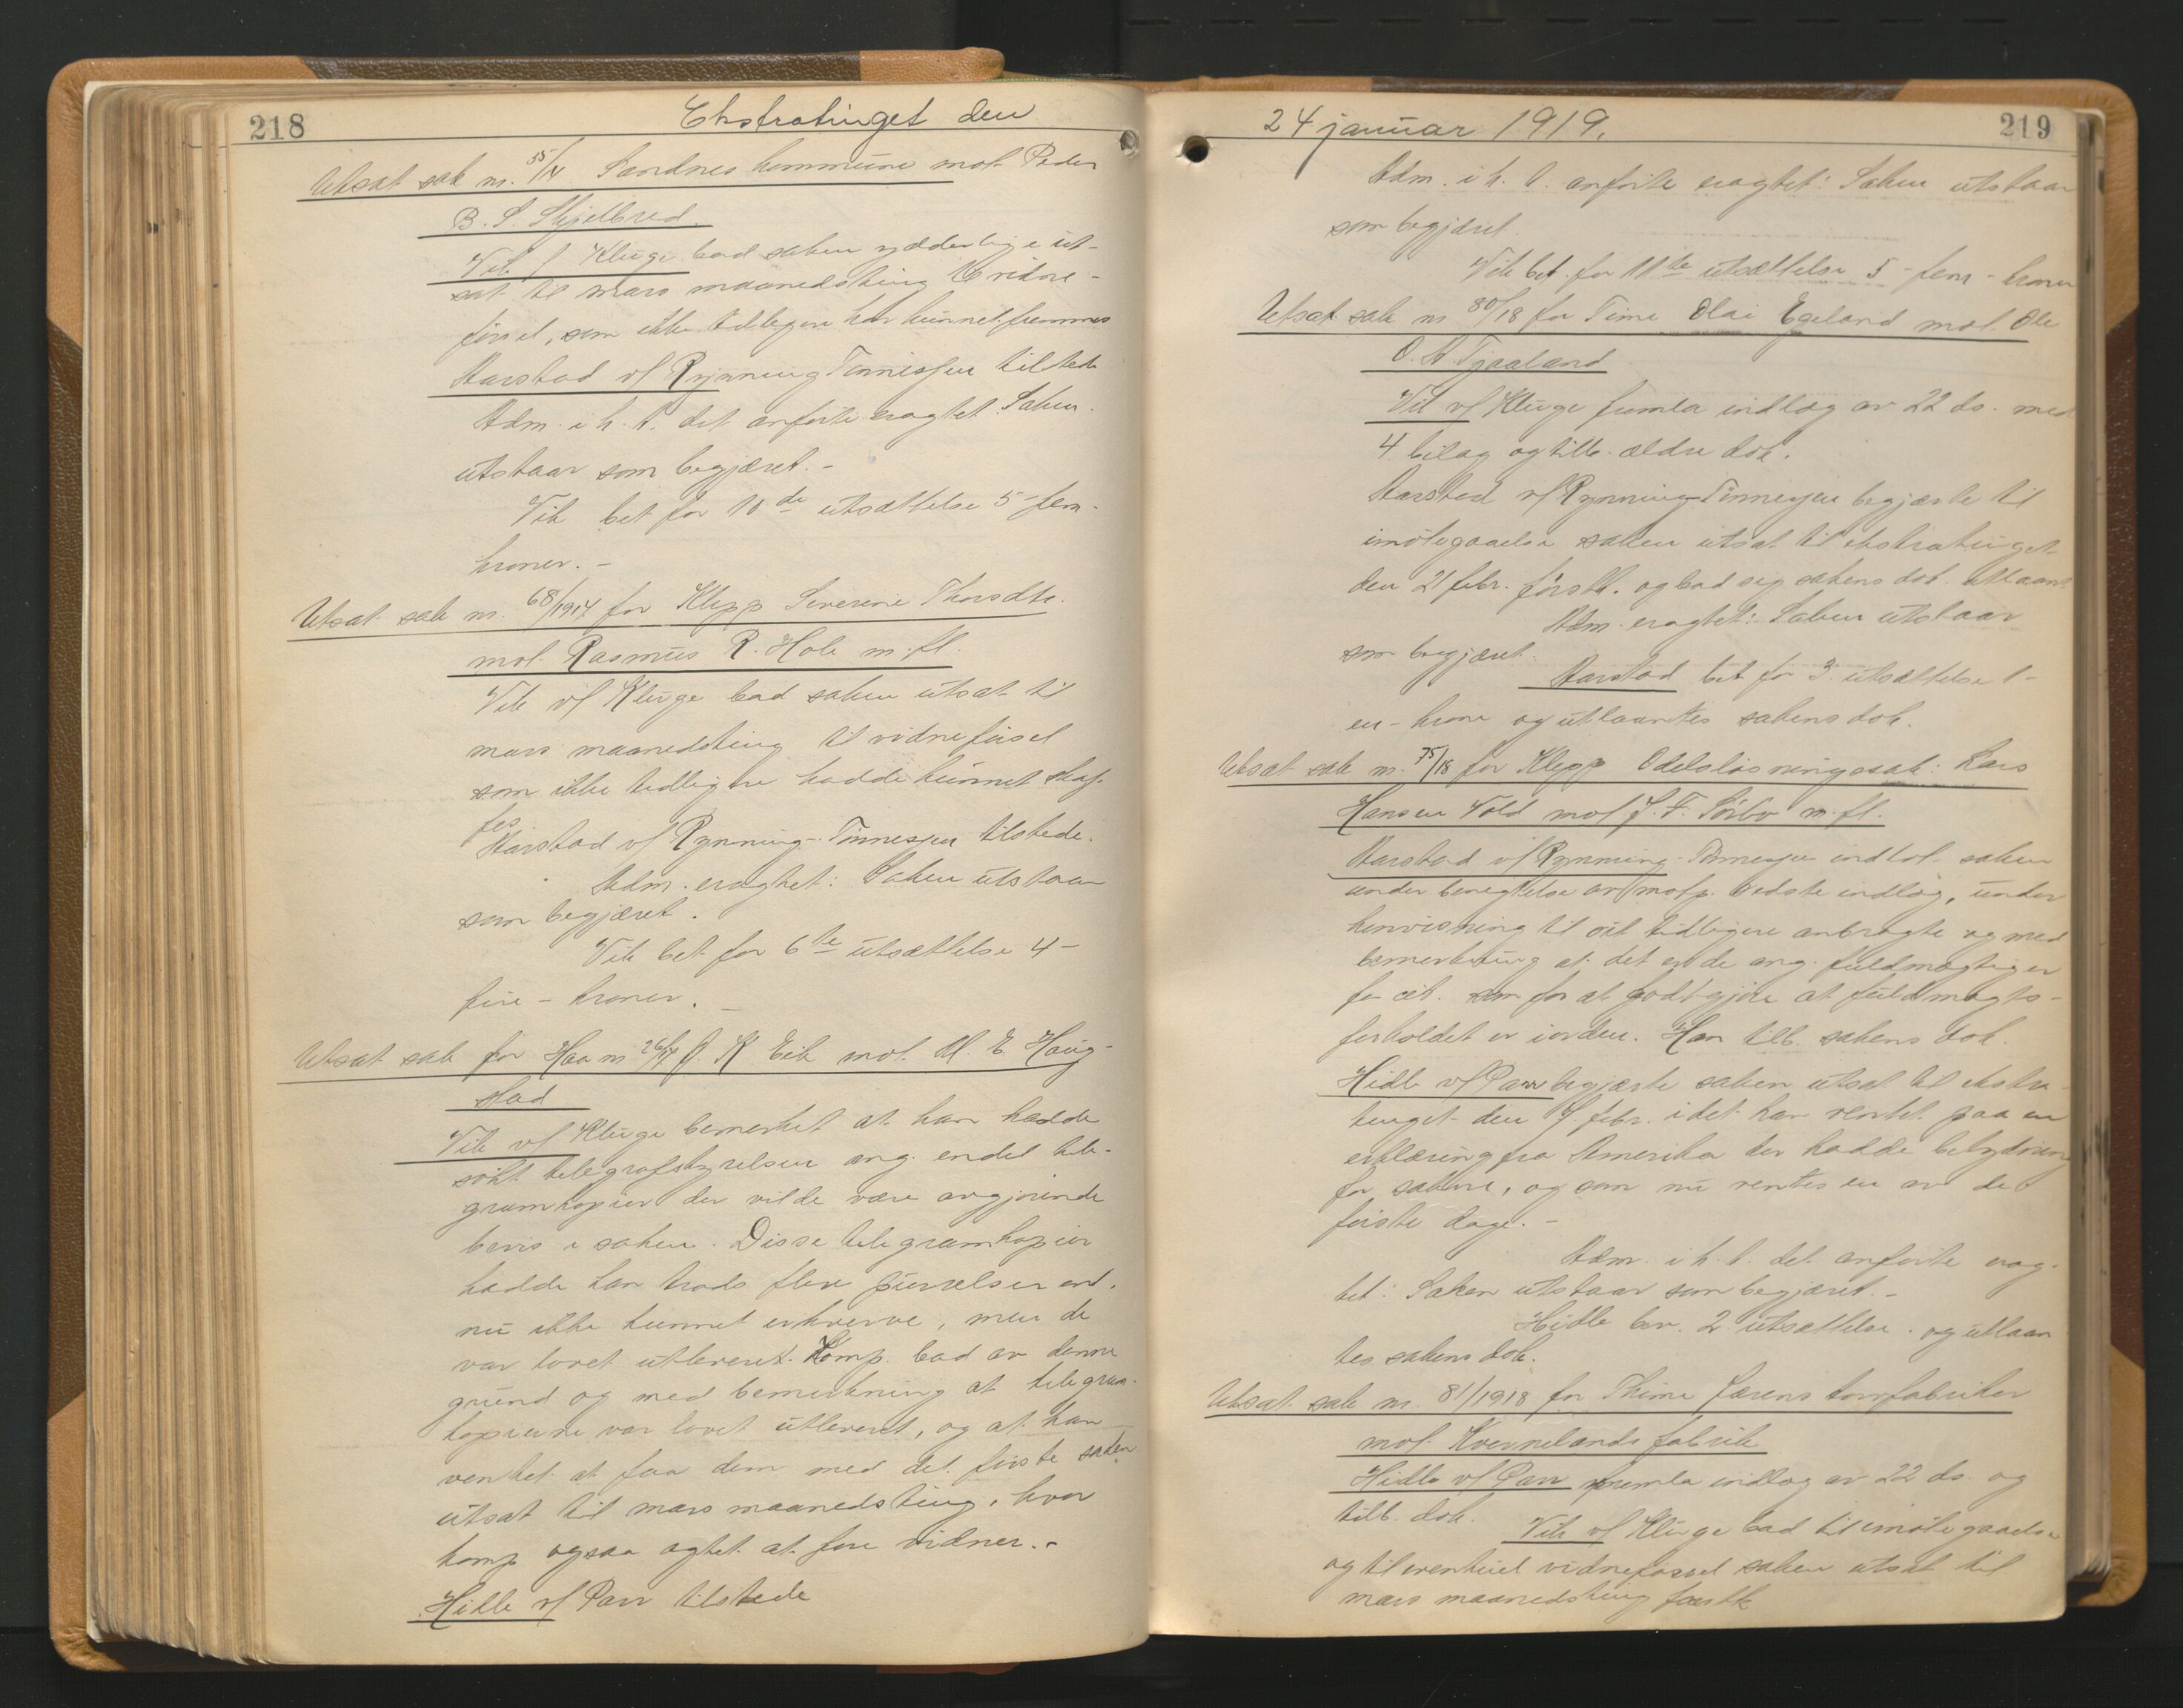 218
Ekstratinget den
Utsat sak nr. 55/14 Sandnes kommune mot Peder
B. S. Skjelbred.
Vik f Kluge bad saken ydderligere ut-
sat til mars maanedsting til vidne-
førsel, som ikke tidligere har kunnet fremmes
Aarstad v/ Rynning Tønnesen tilstede
Adm. i h. t. det anførte eragtet: Saken
utstaar som begjæret. -
Vik bet for 10de utsættelse 5 - fem -
kroner. -
Utsat sak nr. 68/1917 for Klepp Severine Thorsdtr.
mot Rasmus R. Hole m. fl.
Vik v/ Kluge bad saken utsat til
mars maanedsting til vidneførsel
som ikke tidligere hadde kunnet skaf-
fes
Aarstad v/ Rynning-Tønnesen tilstede.
Adm. eragtet: Saken utstaar
som begjæret.
Vik bet for 6te utsættelse 4 -
fire - kroner. -
Utsat sak for Haa nr 26/17 O. K. Eik mot M. E. Haug-
stad
Vik v/ Kluge bemerket at han hadde
søkt telegrafstyrelsen ang. endel tele-
gramkopier der vilde være avgjørende
bevis i saken. Disse telegramkopier
hadde han trods flere purrelser end-
nu ikke kunnet erhverve, men de
var lovet utleveret. Komp. bad av denne
grund og med bemerkning at telegram-
kopierne var lovet utleveret, og at han
ventet at faa dem med det første saken
utsat til mars maanedsting, hvor
komp ogsaa agtet at føre vidner. -
Hidle v/ Parr tilstede
24 januar 1919.
219
Adm. i h. t. anførte eragtet: Saken utstaar
som begjæret.
Vik bet. for 11te utsættelse 5 - fem - kroner
Utsat sak nr 80/18 for Time Olai Egeland mot Ole
O. A. Tjaaland
Vik v/ Kluge fremla indlæg av 22 ds. med
4 bilag og tilb. ældre dok.
Aarstad v/ Rynning-Tønnesen begjærte til
imøtegaaelse saken utsat til ekstratinget
den 21 febr. førstk. og bad sig sakens dok. utlaant
Adm. eragtet: Saken utstaar
som begjæret.
Aarstad bet for 3. utsættelse 1 -
en - krone og utlaantes sakens dok.
Utsat sak nr. 75/18 for Klepp Odelsløsningssak: Lars
Hansen Vold mot J. F. Sørbø m. fl.
Aarstad v/ Rynning-Tønnesen indtok saken
under benegtelse av motp. sidste indlæg, under
henvisning til sit tidligere anbragte og med
bemerkning at det er de ang. fuldmægtiger
for cit. som for at godtgjøre at fuldmagts-
forholdet er iorden. Han tilb. sakens dok.
Hidle v/ Parr begjærte saken utsat til ekstra-
tinget den 7 febr. idet han ventet paa en
erklæring fra Amerika der hadde betydning
for sakene, og som nu ventes en av de
første dage. -
Adm. i h. t. det anførte erag-
tet: Saken utstaar som begjæret. -
Hidle bev. 2. utsættelse. og utlaan-
tes sakens dok.
Utsat sak nr. 81/1918 for Thime Jærens torvfabriker
mot Kvernelands fabrik
Hidle v/ Parr fremla indlæg av 22 ds. og
tilb. dok.
Vik v/ Kluge bad til imøtegaaelse
og til eventuel vidneførsel saken utsat til
mars maanedsting førstk